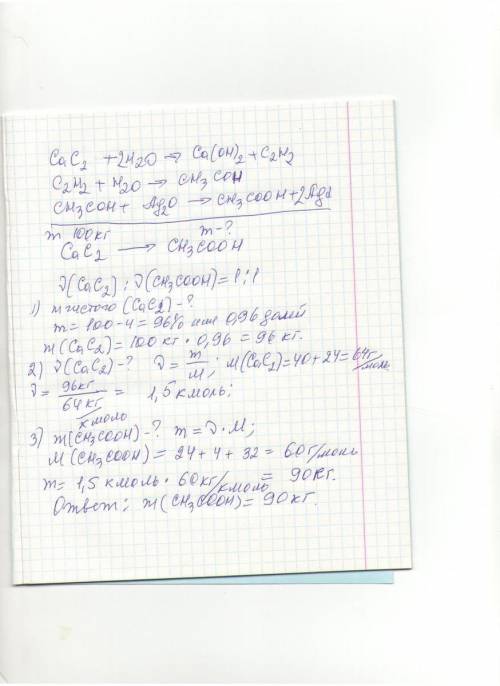 CaC₂ + 2H₂O → Ca(OH)₂ + C₂H₂
C₂H₂ + H₂O → CH₃COH
CH₃COH + Ag₂O → CH₃COOH + 2Ag↓
m 100кг m-?
CaC₂ → CH₃COOH
ν(CaC₂) : ν(CH₃COOH) = 1:1
1) m чистого (CaC₂) -?
m = 100-4 = 96% или 0,96 долей
m(CaC₂) = 100 кг · 0,96 = 96 кг.
2) ν(CaC₂) -? ν = m/M; M(CaC₂) = 40 + 24 = 64 г/моль
ν = 96кг/64 кг/кмоль = 1,5 кмоль;
3) m(CH₃COOH) -? m = ν · M;
M(CH₃COOH) = 24 + 4 + 32 = 60 г/моль
m = 1,5 кмоль · 60 кг/кмоль = 90 кг.
Ответ: m(CH₃COOH) = 90 кг.